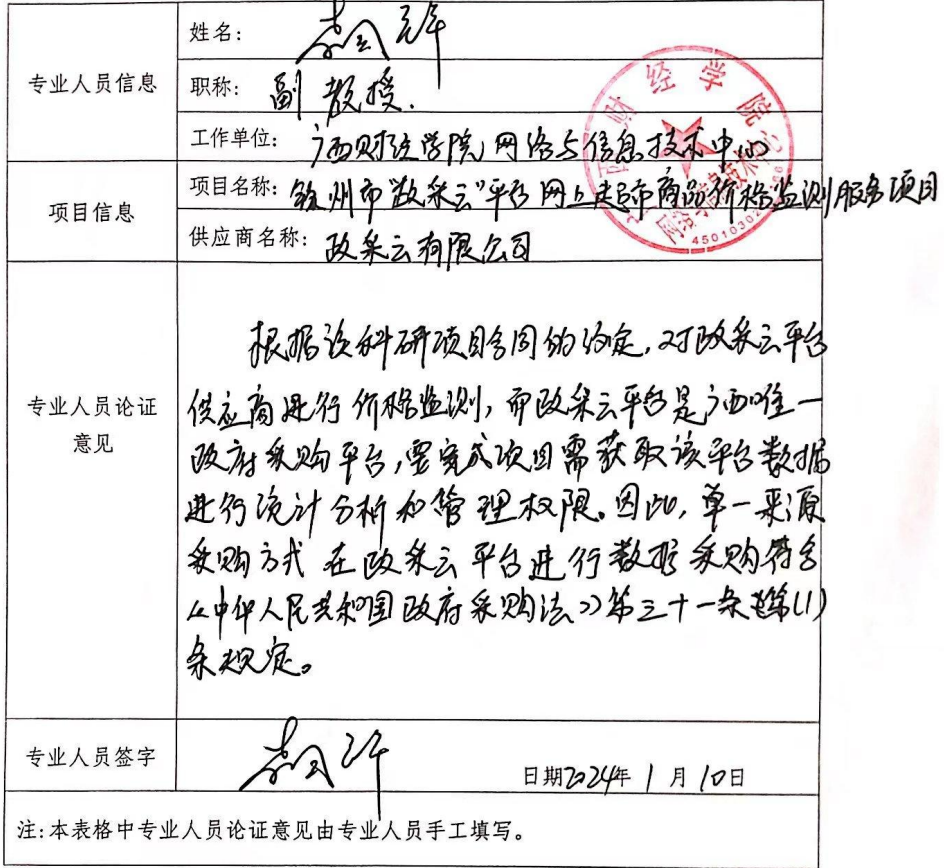 专业人员信息
姓名：
职称： 副教授.
工作单位： 广西财经学院网络与信息技术中心
项目信息
项目名称： 钦州市"政采云"平台网上超市商品价格监测服务项目
供应商名称： 政采云有限公司
财经学院
45010302
专业人员论证
意见
根据该科研项目合同的约定,对政采云平台
供应商进行价格监测,而政采云平台是广西唯一
政府采购平台,要完成项目需获取该平台数据
进行统计分析和管理权限。因此,单一来源
采购方式在政采云平台进行数据采购符合
《中华人民共和国政府采购法》第三十一条第(1)
条规定。
专业人员签字
日期2024年1月10日
注:本表格中专业人员论证意见由专业人员手工填写。